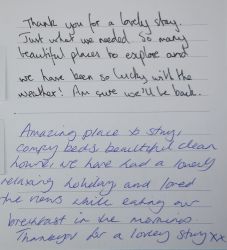 Thank you for a lovely stay.
Just what we needed. So many
beautiful places to explore and
we have been so lucky with the
weather! Am sure we'll be back.
Amazing place to stay,
comfy beds beautiful clean
home, we have had a lovely
relaxing holiday and loved
the views while eating our
breakfast in the mornings.
Thankyou for a lovely stay xx